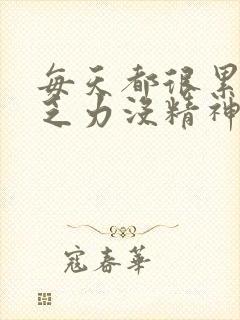 每天都很累
乏力没精神
寇春华